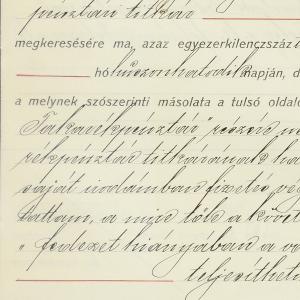 pénztári titkár
megkeresésére ma, azaz egyezerkilenczszáz
hó huszonhatodik napján, d
a melynek szószerinti másolata a tulsó oldalo
Takarékpénztár" részére
rékpénztár titkárának
saját irodámban fizetés vé
lattam, a mire tőle a követ
" fedezet hiányában a
teljesíthet